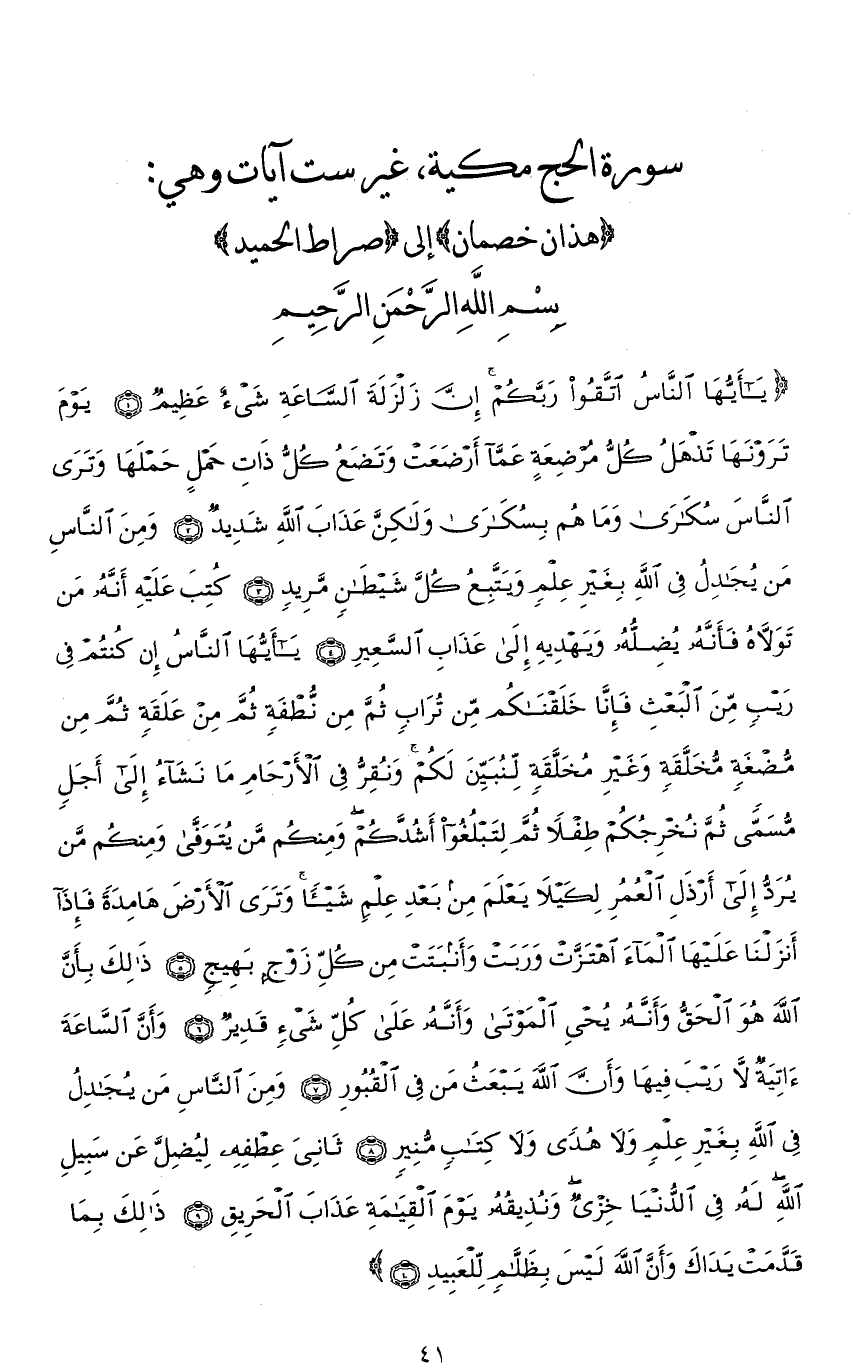 سورة الحج مكية، غير ست آيات وهي:
﴿هذان خصمان﴾ إلى ﴿صراط الحميد﴾
بِسْمِ اللَّهِ الرَّحْمَنِ الرَّحِيمِ
﴿ يَـٰٓأَيُّهَا ٱلنَّاسُ ٱتَّقُوا۟ رَبَّكُمْ ۚ إِنَّ زَلْزَلَةَ ٱلسَّاعَةِ شَىْءٌ عَظِيمٌ ١ يَوْمَ
تَرَوْنَهَا تَذْهَلُ كُلُّ مُرْضِعَةٍ عَمَّآ أَرْضَعَتْ وَتَضَعُ كُلُّ ذَاتِ حَمْلٍ حَمْلَهَا وَتَرَى
ٱلنَّاسَ سُكَـٰرَىٰ وَمَا هُم بِسُكَـٰرَىٰ وَلَـٰكِنَّ عَذَابَ ٱللَّهِ شَدِيدٌ ٢ وَمِنَ ٱلنَّاسِ
مَن يُجَـٰدِلُ فِى ٱللَّهِ بِغَيْرِ عِلْمٍ وَيَتَّبِعُ كُلَّ شَيْطَـٰنٍ مَّرِيدٍ ٣ كُتِبَ عَلَيْهِ أَنَّهُۥ مَن
تَوَلَّاهُ فَأَنَّهُۥ يُضِلُّهُۥ وَيَهْدِيهِ إِلَىٰ عَذَابِ ٱلسَّعِيرِ ٤ يَـٰٓأَيُّهَا ٱلنَّاسُ إِن كُنتُمْ فِى
رَيْبٍ مِّنَ ٱلْبَعْثِ فَإِنَّا خَلَقْنَـٰكُم مِّن تُرَابٍ ثُمَّ مِن نُّطْفَةٍ ثُمَّ مِنْ عَلَقَةٍ ثُمَّ مِن
مُّضْغَةٍ مُّخَلَّقَةٍ وَغَيْرِ مُخَلَّقَةٍ لِّنُبَيِّنَ لَكُمْ ۚ وَنُقِرُّ فِى ٱلْأَرْحَامِ مَا نَشَآءُ إِلَىٰٓ أَجَلٍ
مُّسَمًّى ثُمَّ نُخْرِجُكُمْ طِفْلًا ثُمَّ لِتَبْلُغُوٓا۟ أَشُدَّكُمْ ۖ وَمِنكُم مَّن يُتَوَفَّىٰ وَمِنكُم مَّن
يُرَدُّ إِلَىٰٓ أَرْذَلِ ٱلْعُمُرِ لِكَيْلَا يَعْلَمَ مِنۢ بَعْدِ عِلْمٍ شَيْـًٔا ۚ وَتَرَى ٱلْأَرْضَ هَامِدَةً فَإِذَآ
أَنزَلْنَا عَلَيْهَا ٱلْمَآءَ ٱهْتَزَّتْ وَرَبَتْ وَأَنۢبَتَتْ مِن كُلِّ زَوْجٍۭ بَهِيجٍ ٥ ذَٰلِكَ بِأَنَّ
ٱللَّهَ هُوَ ٱلْحَقُّ وَأَنَّهُۥ يُحْىِ ٱلْمَوْتَىٰ وَأَنَّهُۥ عَلَىٰ كُلِّ شَىْءٍ قَدِيرٌ ٦ وَأَنَّ ٱلسَّاعَةَ
ءَاتِيَةٌ لَّا رَيْبَ فِيهَا وَأَنَّ ٱللَّهَ يَبْعَثُ مَن فِى ٱلْقُبُورِ ٧ وَمِنَ ٱلنَّاسِ مَن يُجَـٰدِلُ
فِى ٱللَّهِ بِغَيْرِ عِلْمٍ وَلَا هُدًى وَلَا كِتَـٰبٍ مُّنِيرٍ ٨ ثَانِىَ عِطْفِهِۦ لِيُضِلَّ عَن سَبِيلِ
ٱللَّهِ ۖ لَهُۥ فِى ٱلدُّنْيَا خِزْىٌ ۖ وَنُذِيقُهُۥ يَوْمَ ٱلْقِيَـٰمَةِ عَذَابَ ٱلْحَرِيقِ ٩ ذَٰلِكَ بِمَا
قَدَّمَتْ يَدَاكَ وَأَنَّ ٱللَّهَ لَيْسَ بِظَلَّـٰمٍ لِّلْعَبِيدِ ١٠ ﴾
٤١